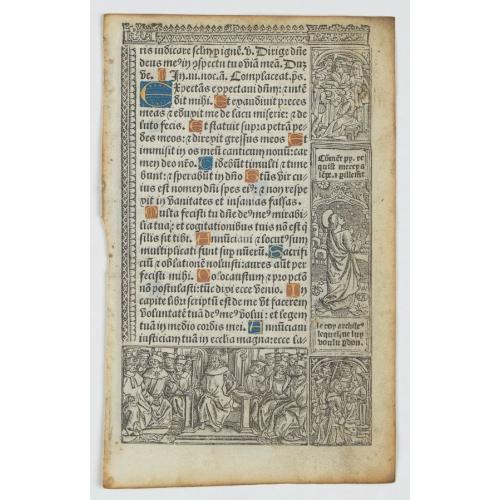 ris iudicare sclm p ignē. v. Dirige dñe
deus me9 in cōspectu tuo viā meā. Duz
ve. In .iii. noc. a. Complaceat. ps.
Expectās expectaui dñm: z intē
dit mihi. Et exaudiuit preces
meas z eduxit me de lacu miserie: z de
luto fecis. Et statuit supra petrā pe-
des meos: z direxit gressus meos Et
immisit in os meū canticum nouū: car
men deo nr̄o. Videbūt multi z time
bunt: z sperabūt in dño Btūs vir cu-
ius est nomen dñi spes ei9: z non respe
xit in vanitates et insanias falsas.
Multa fecisti tu dñe de9 me9 mirabi-
lia tua: et cogitationibus tuis nō est q̄
silis sit tibi. Annūciaui z locut9 sum
multiplicati sunt sup nūerū. Sacrifi
ciū z oblationē noluisti: aures aūt per
fecisti mihi. Holocaustum z pro pctō
nō postulasti: tūc dixi ecce venio. In
capite libri scriptū est de me vt facerem
voluntatē tuā de9 me9 volui: et legem
tuā in medio cordis mei. Annūciaui
iusticiam tuā in ecclīa magna: ecce la-
Cōmēt
quist mercy a
le roy
lequel ne luy
voulu pdon.